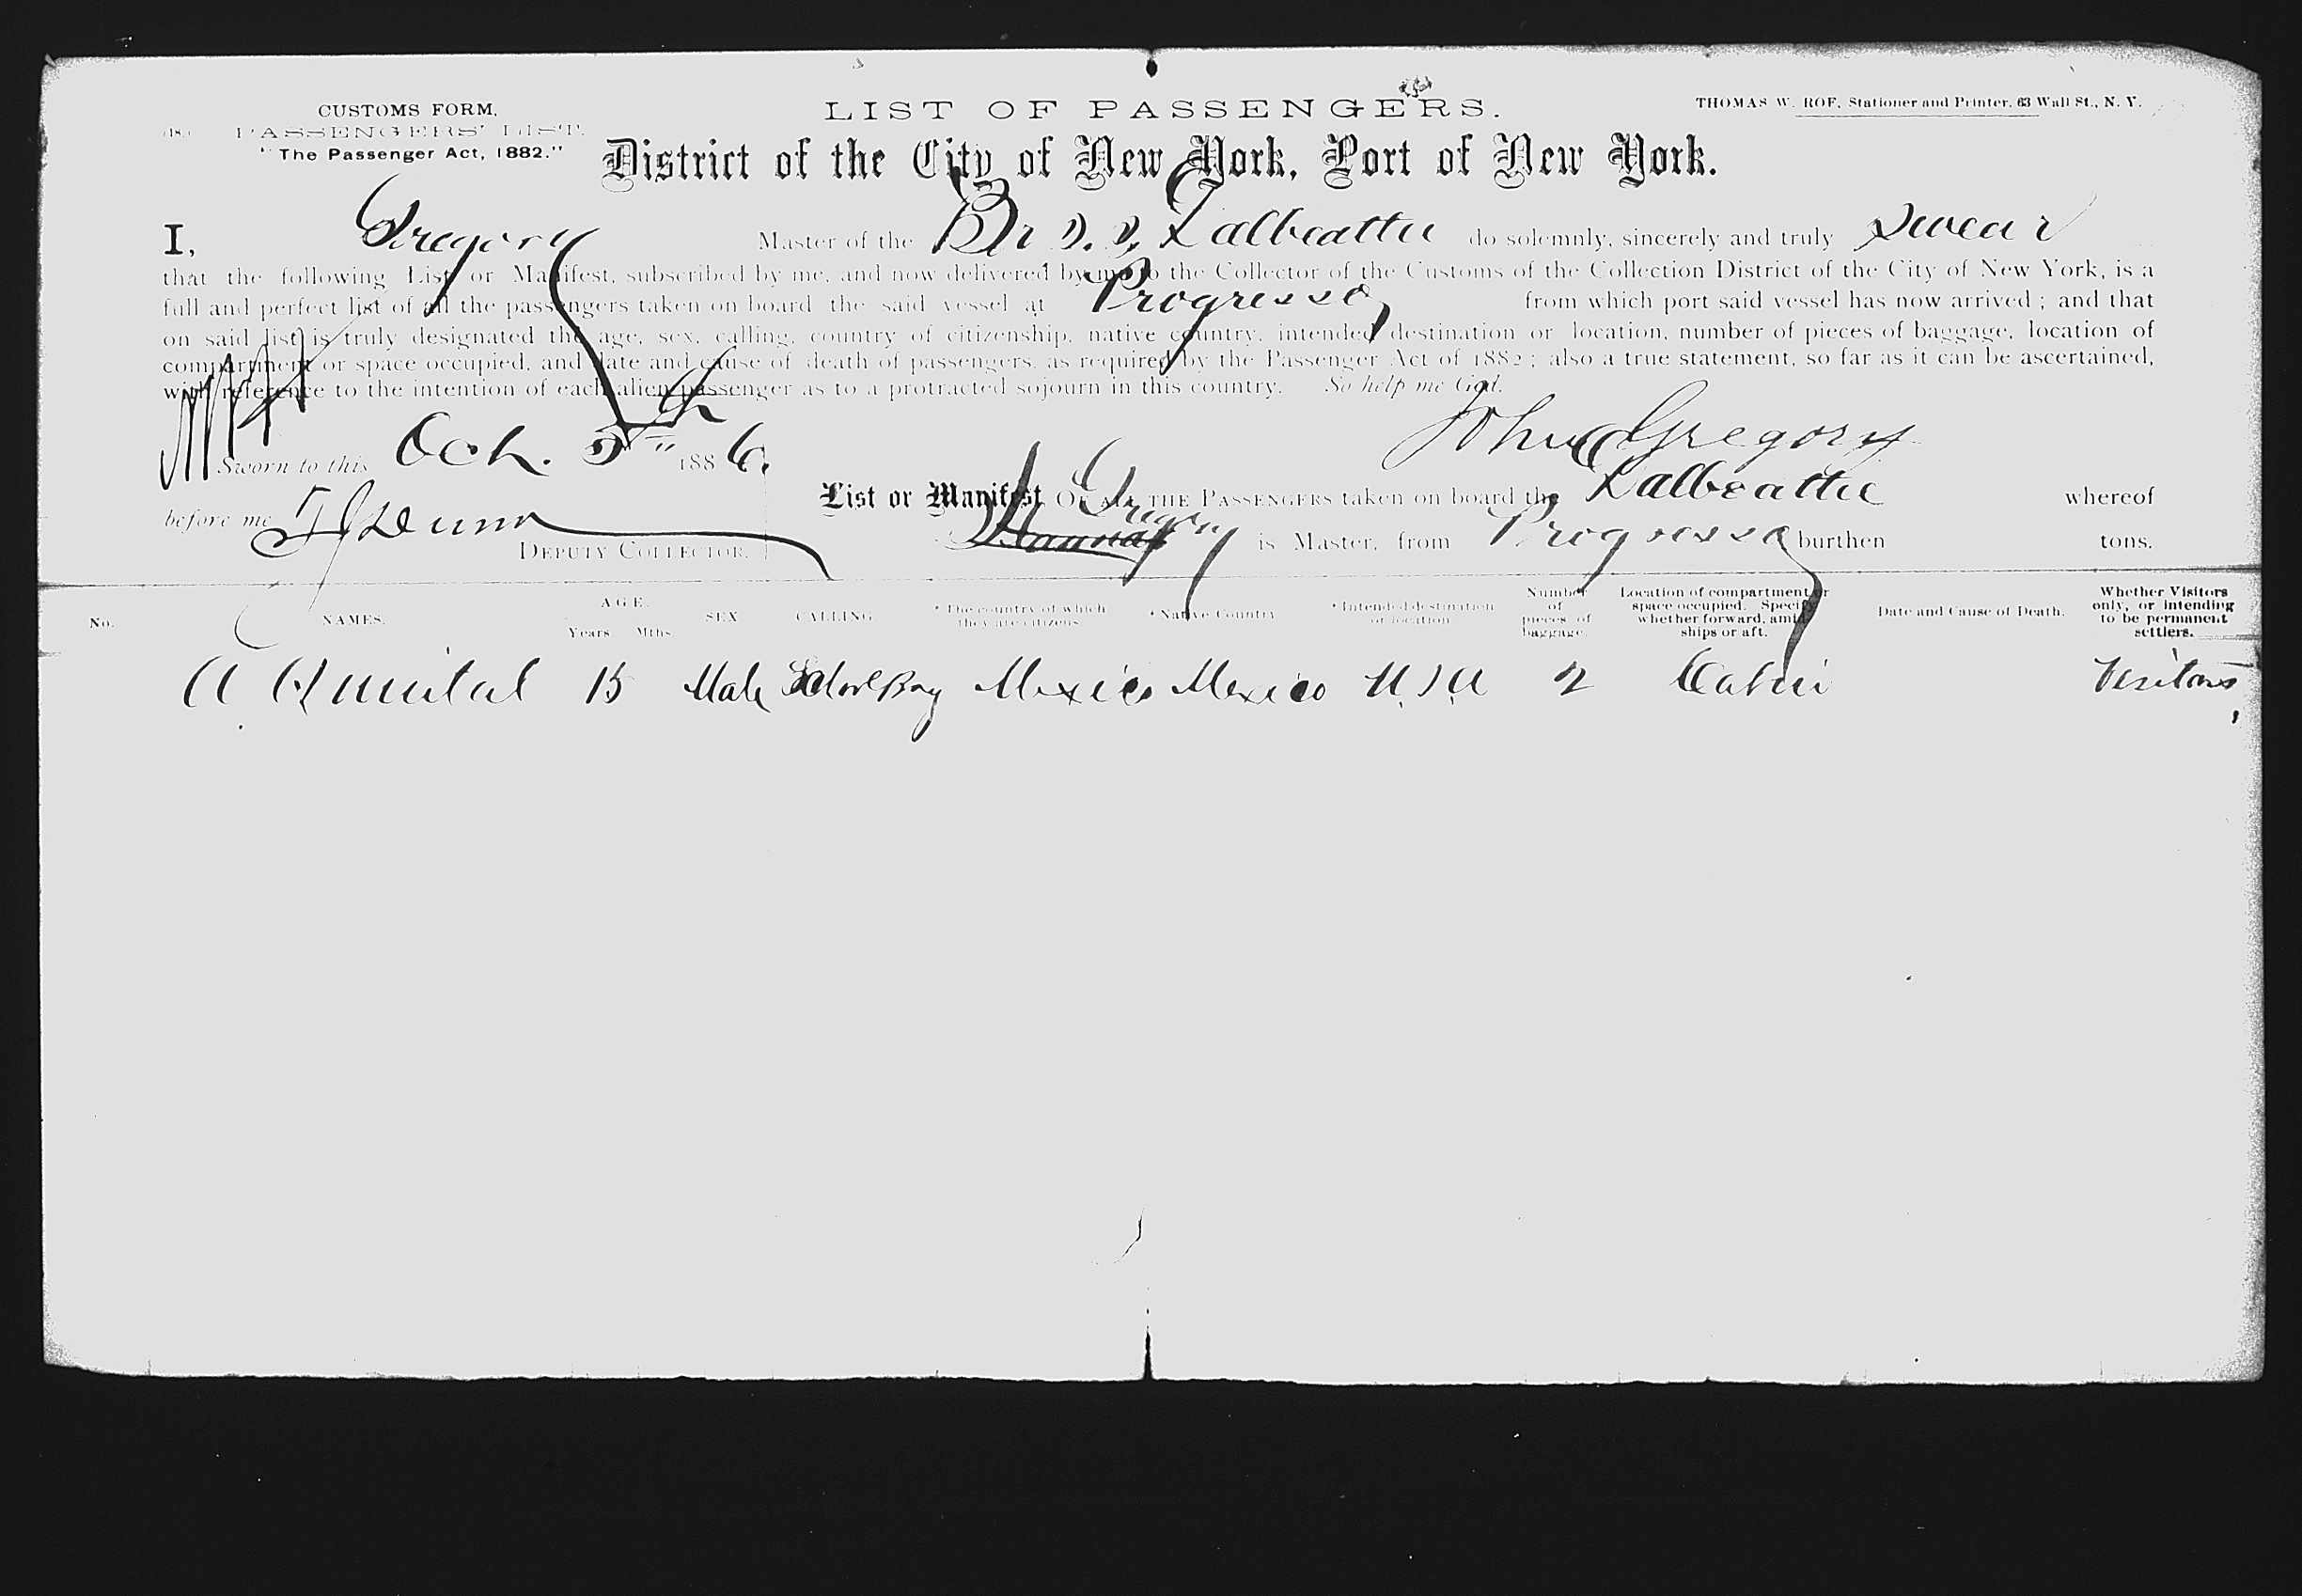 CUSTOMS FORM.
PASSENGERS' LIST.
"The Passenger Act, 1882."
LIST OF PASSENGERS.
THOMAS W. ROE, Stationer and Printer, 63 Wall St., N. Y.
District of the City of New York, Port of New York.
I, Gregory Master of the Br S.S. Dalbeattie do solemnly, sincerely and truly swear
that the following List or Manifest, subscribed by me, and now delivered by me to the Collector of the Customs of the Collection District of the City of New York, is a
full and perfect list of all the passengers taken on board the said vessel at Progresso from which port said vessel has now arrived; and that
on said list is truly designated the age, sex, calling, country of citizenship, native country, intended destination or location, number of pieces of baggage, location of
compartment or space occupied, and date and cause of death of passengers, as required by the Passenger Act of 1882; also a true statement, so far as it can be ascertained,
with reference to the intention of each alien passenger as to a protracted sojourn in this country. So help me God.
John Gregory
Sworn to this Oct. 5th 1886.
List or Manifest OF ALL THE PASSENGERS taken on board the Dalbeattie whereof
before me Dunn
DEPUTY COLLECTOR.
Gregory is Master, from Progresso burthen tons.
No. NAMES. AGE. Years. Mths. SEX CALLING * The country of which they are citizens. * Native Country * Intended destination or location Number of pieces of baggage. Location of compartment or space occupied. Specify whether forward, amidships or aft. Date and Cause of Death. Whether Visitors only, or intending to be permanent settlers.
A Quintal 15 Male School Boy Mexico Mexico U.S.A 2 Cabin Visitors